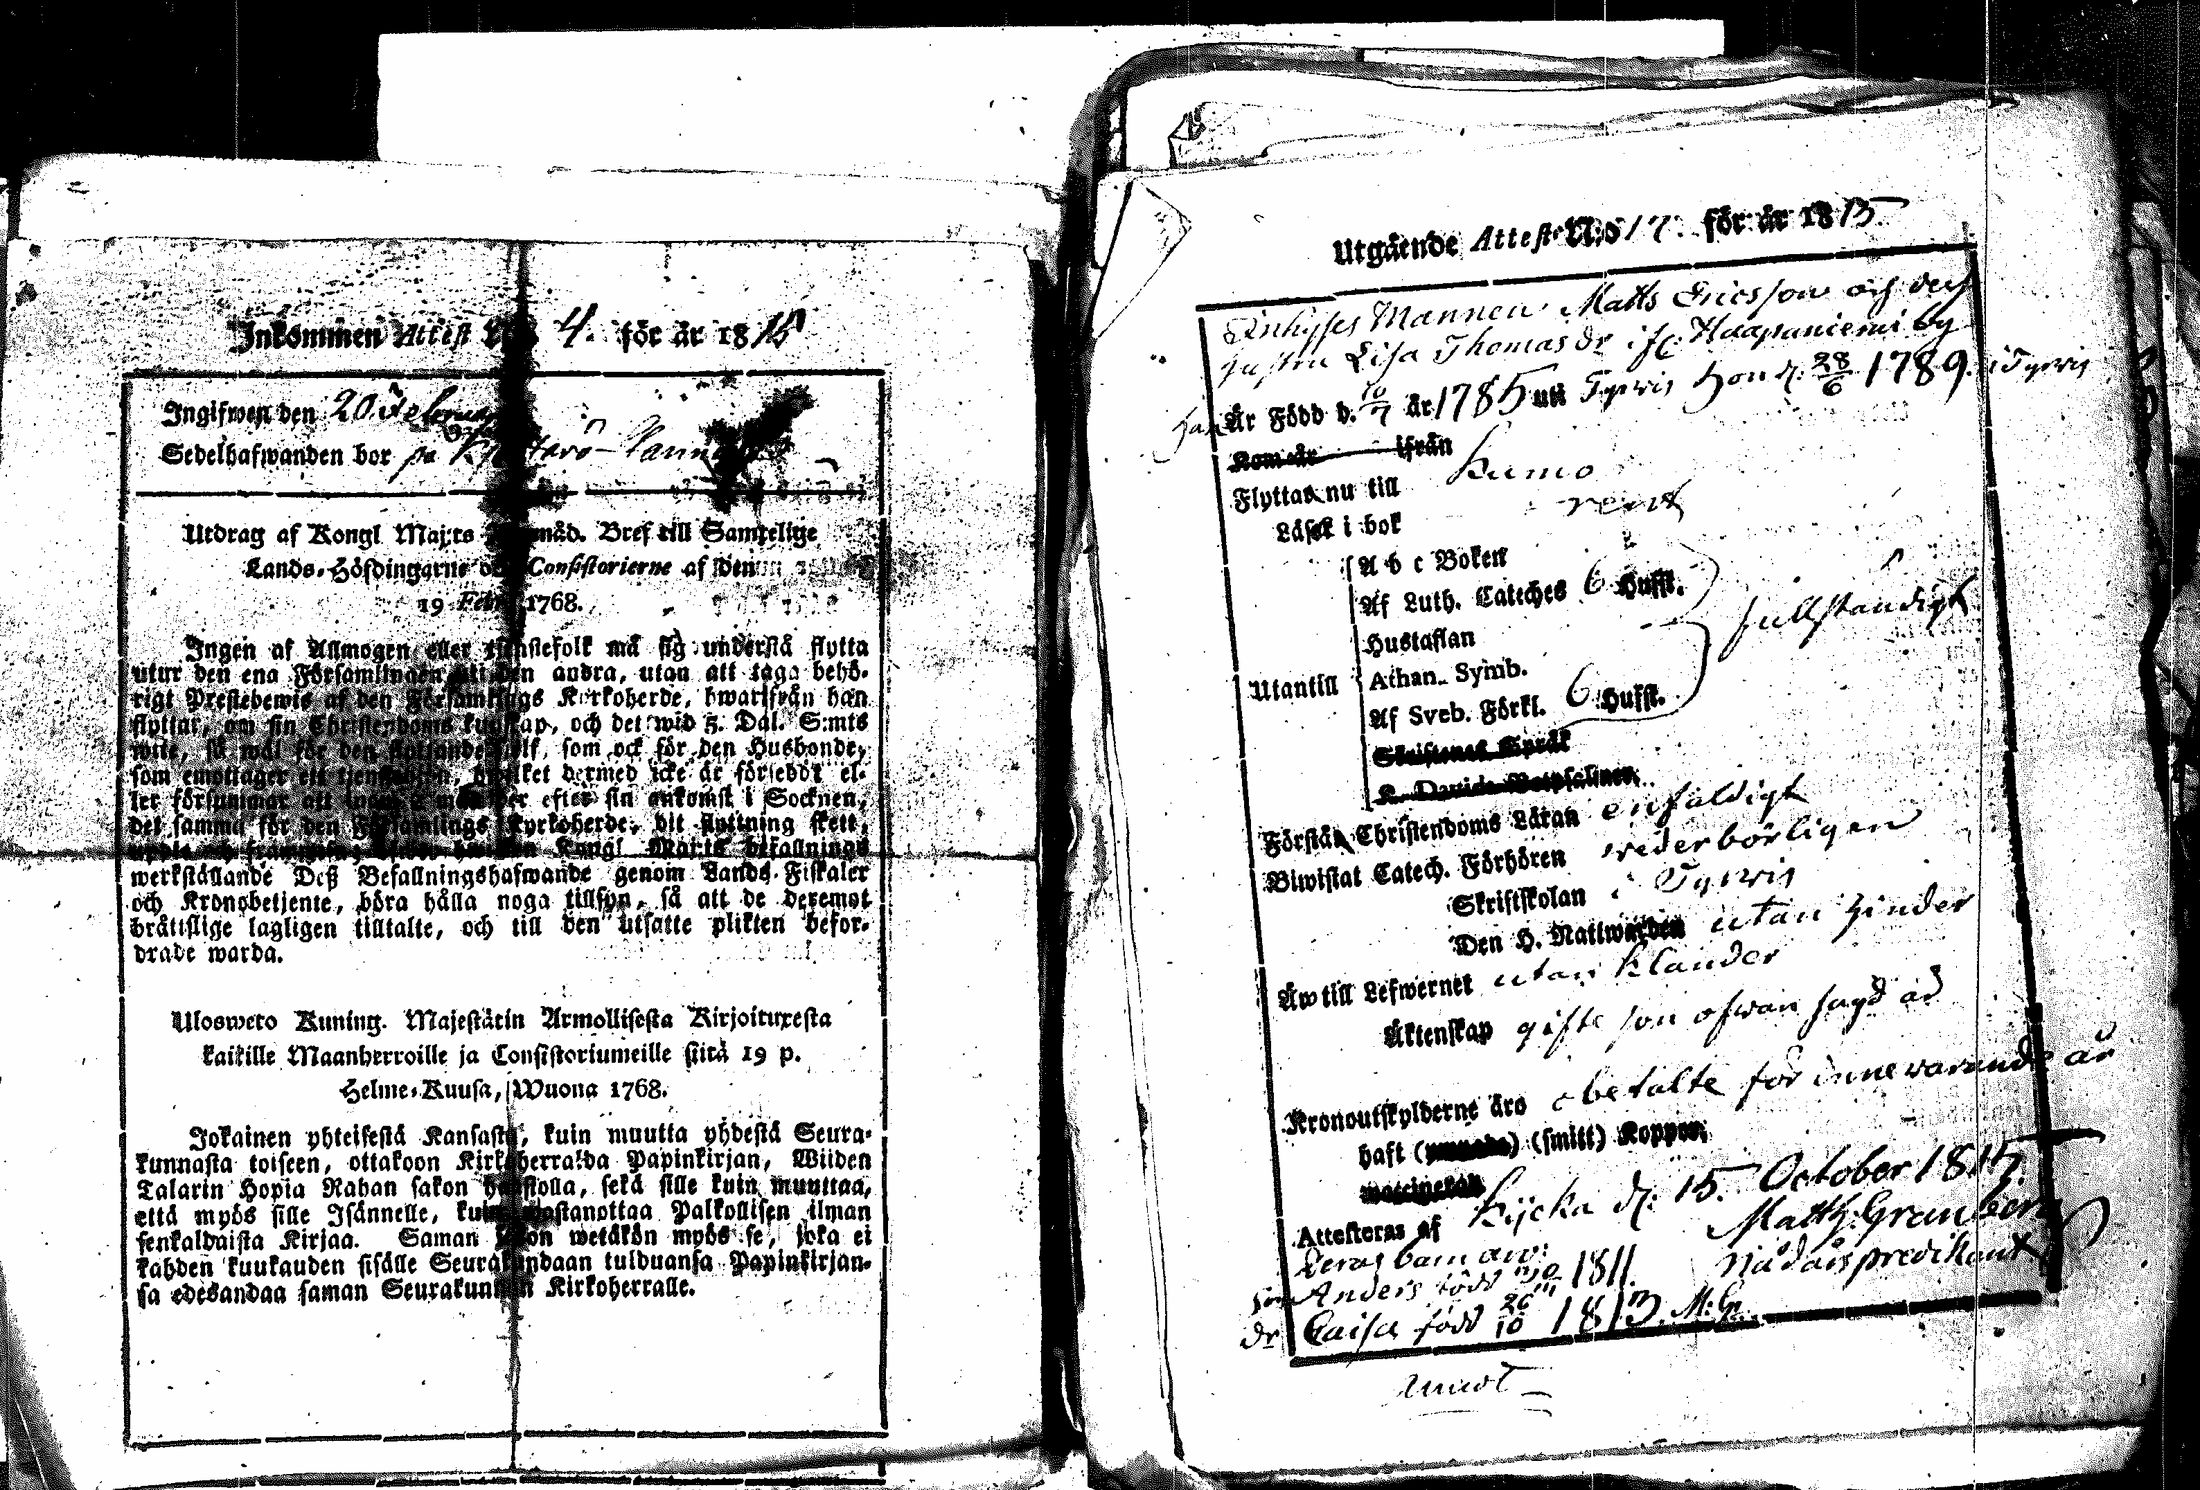 Inkommen Attest 4. för år 1815
Ingifwen den 20
Sedelhafwanden bor på
Utdrag af Kongl Maj:ts Nåd. Bref till Samtelige
Lands-Höfdingarne och Consistorierne af den
19 Febr. 1768.
Ingen af Allmogen eller tjenstefolk må sig understå flytta
utur den ena Församlingen till den andra, utan att taga behö-
rigt Prestebewis af den Församlings Kyrkoherde, hwarifrån han
flyttar, om sin Christendoms kunskap, och det wid 5. Dal. S:mts
wite, så wäl för den flyttande sjelf, som ock för den Husbonde,
som emottager ett tjenstehjon, hwilket dermed icke är försedt el-
ler försummar att inom 2 månader efter sin ankomst i Socknen,
det samma för den Församlings Kyrkoherde, dit flyttning skett,
uppte och framwisa; Kongl Maj:ts befallnings
werkställande Deß Befallningshafwande genom Lands-Fiskaler
och Kronobetjente, böra hålla noga tillsyn, så att de deremot
bråttslige lagligen tilltalte, och till den utsatte plikten befor-
drade warda.
Ulosweto Kuning. Majestätin Armollisesta Kirjoituxesta
kaikille Maanherroille ja Consistoriumeille siitä 19 p.
Helme-Kuusa, Wuona 1768.
Jokainen yhteisestä Kansasta, kuin muutta yhdestä Seura-
kunnasta toiseen, ottakoon Kirkoherralda Papinkirjan, Wiiden
Talarin Hopia Rahan sakon haastolla, sekä sille kuin muuttaa,
että myös sille Isännelle, kuin wastanottaa Palkollisen ilman
senkaldaista Kirjaa. Saman sakon wetäkön myös se, joka ei
kahden kuukauden sisälle Seurakundaan tulduansa Papinkirjan-
sa edesandaa saman Seurakunnan Kirkoherralle.
Utgående Attest N:o 17. för år 1815
Inhyses Mannen Matts Ericsson och des
hustru Lisa Thomasdr ifr: Haapaniemi by
han Är Född d. 10/7 år 1785 uti Tyrwis hon d: 28/6 1789. i Tyrwis
Kom år ifrån
Flyttar nu till Kumo
Läser i bok rent
A b c Boken
Af Luth. Cateches 6 Hufst.
Hustaflan fullständigt
Utantill Athan. Symb.
Af Sveb. Förkl. 6 Hufst.
Skriftenes Språk
K. Davids Botpsalmer
Förstår Christendoms Läran enfaldigt
Biwistat Catech. Förhören wederbörligen
Skriftskolan i Tyrwis
Den H. Nattwarden utan hinder
Är till Lefwernet utan klander
Äktenskap gifte som ofwan sagd är
Kronoutskylderne äro obetalte för innewarande år
haft (smitt) Koppor,
Attesteras af Kjicka d: 15. October 1815.
Deras barn äro: Matth: Granberg
son Anders född 1811. Nådårspredikant
dr Caisa född 26/10 1813. M: Gr.